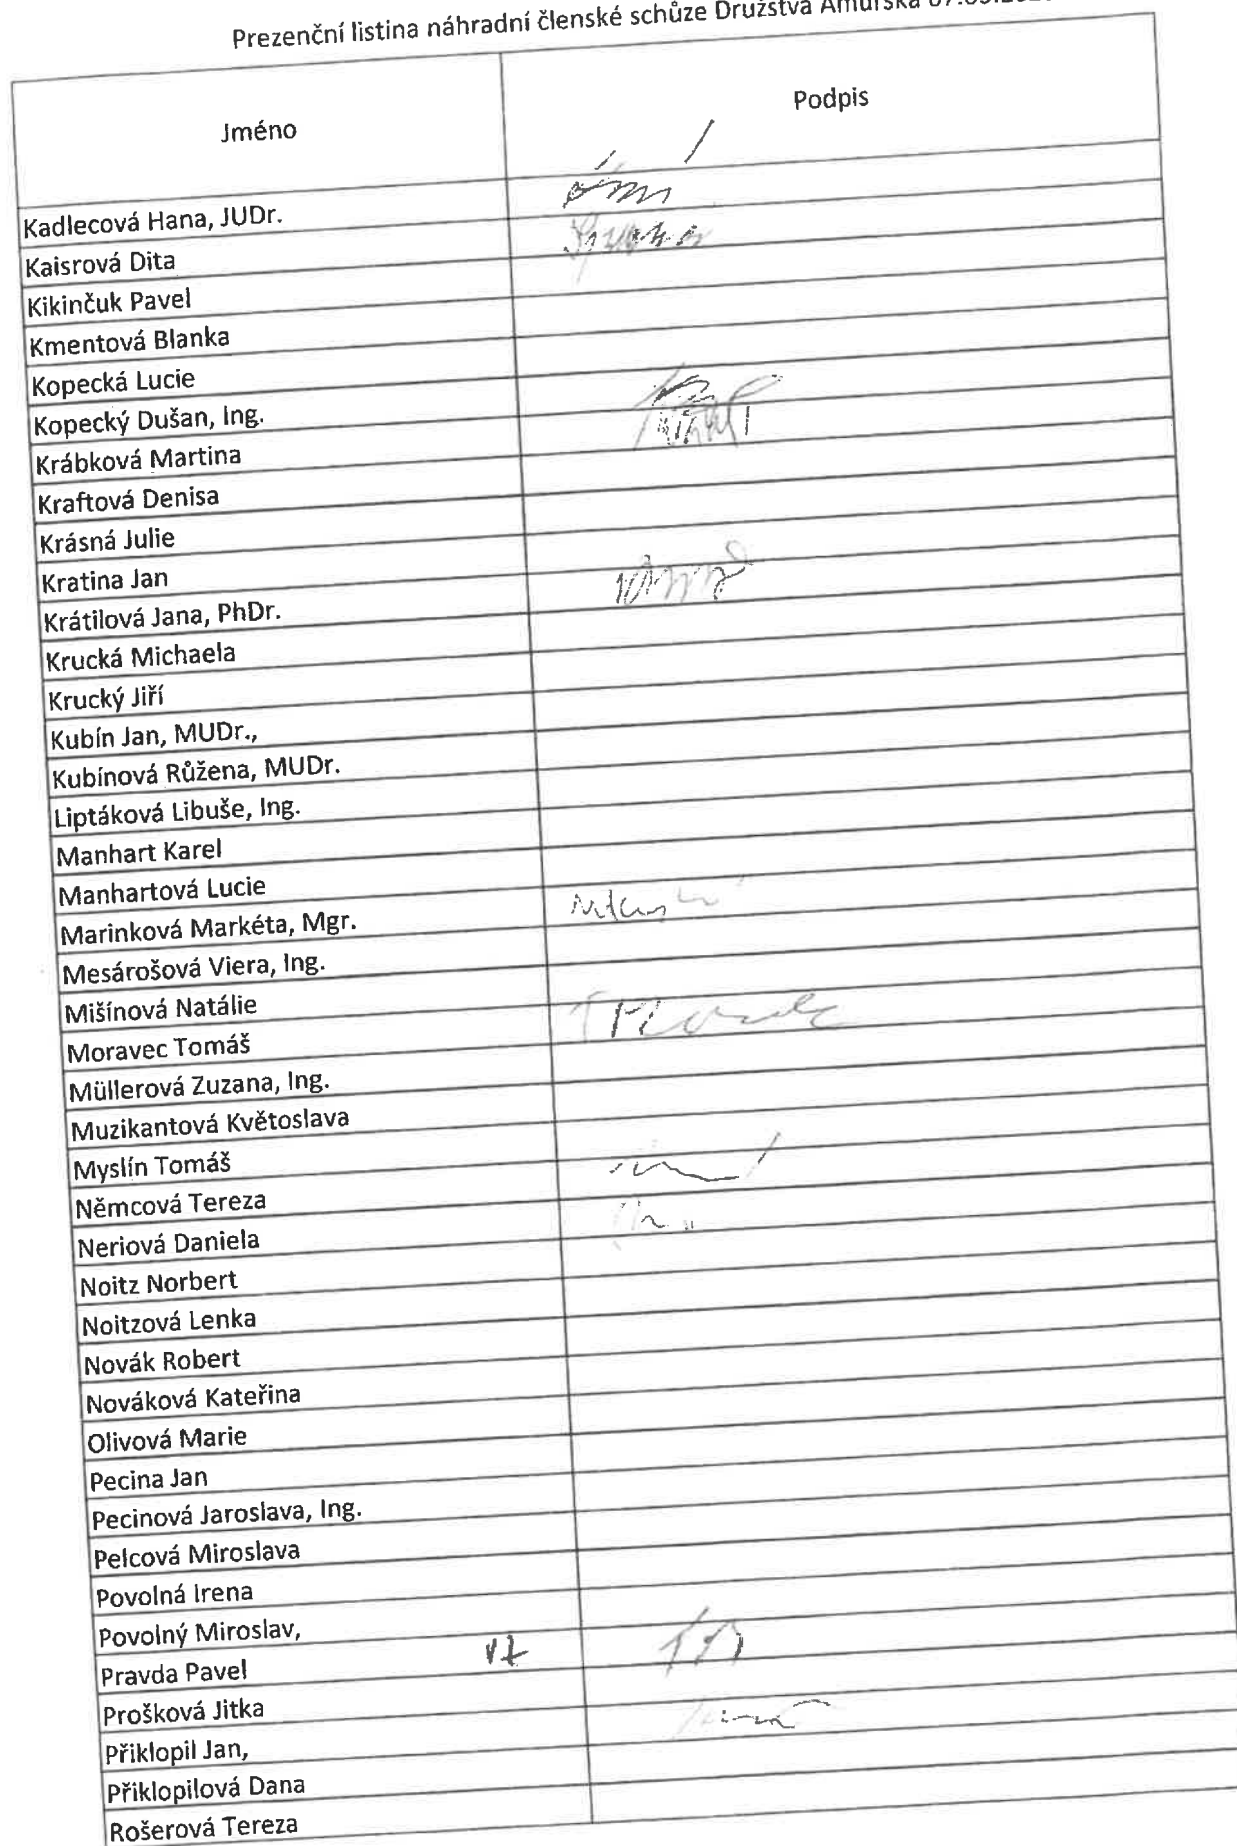 Prezenční listina náhradní členské schůze Družstva Amurská
Jméno Podpis
Kadlecová Hana, JUDr.
Kaisrová Dita
Kikinčuk Pavel
Kmentová Blanka
Kopecká Lucie
Kopecký Dušan, Ing.
Krábková Martina
Kraftová Denisa
Krásná Julie
Kratina Jan
Krátilová Jana, PhDr.
Krucká Michaela
Krucký Jiří
Kubín Jan, MUDr.,
Kubínová Růžena, MUDr.
Liptáková Libuše, Ing.
Manhart Karel
Manhartová Lucie
Marinková Markéta, Mgr.
Mesárošová Viera, Ing.
Mišínová Natálie
Moravec Tomáš
Müllerová Zuzana, Ing.
Muzikantová Květoslava
Myslín Tomáš
Němcová Tereza
Neriová Daniela
Noitz Norbert
Noitzová Lenka
Novák Robert
Nováková Kateřina
Olivová Marie
Pecina Jan
Pecinová Jaroslava, Ing.
Pelcová Miroslava
Povolná Irena
Povolný Miroslav,
Pravda Pavel
Prošková Jitka
Přiklopil Jan,
Přiklopilová Dana
Rošerová Tereza